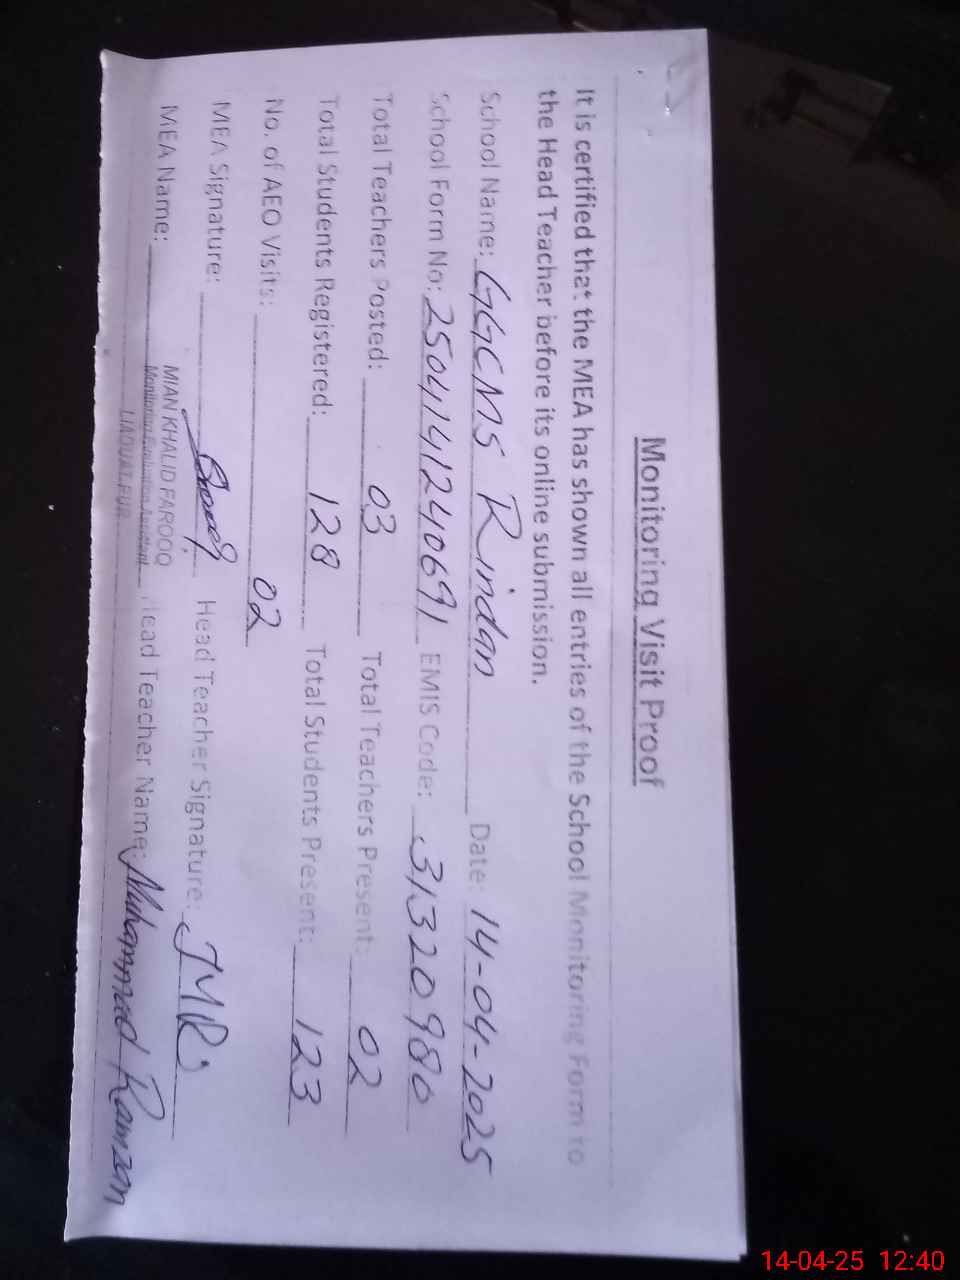 Monitoring Visit Proof
It is certified that the MEA has shown all entries of the School Monitoring Form to
the Head Teacher before its online submission.
School Name: GGCMS Rindan Date: 14-04-2025
School Form No: 250414124069 1 EMIS Code: 31320980
Total Teachers Posted: 03 Total Teachers Present: 02
Total Students Registered: 128 Total Students Present: 123
No. of AEO Visits: 02
MEA Signature: Head Teacher Signature: JMR
MEA Name: MIAN KHALID FAROOQ Head Teacher Name: Muhammad Ramzan
Monitoring Evaluation Assistant
LIAQUAT PUR
14-04-25 12:40